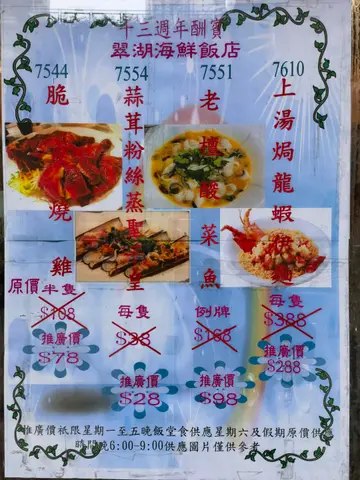 十三週年酬賓
翠湖海鮮飯店
7544
脆燒雞
原價半隻
$108
推廣價
$78
7554
蒜茸粉絲蒸聖子皇
每隻
$38
推廣價
$28
7551
老壇酸菜魚
例牌
$168
推廣價
$98
7610
上湯焗龍蝦伊麵
每隻
$388
推廣價
$288
推廣價衹限星期一至五晚飯堂食供應星期六及假期原價供應
時間晚6:00-9:00供應圖片僅供參考